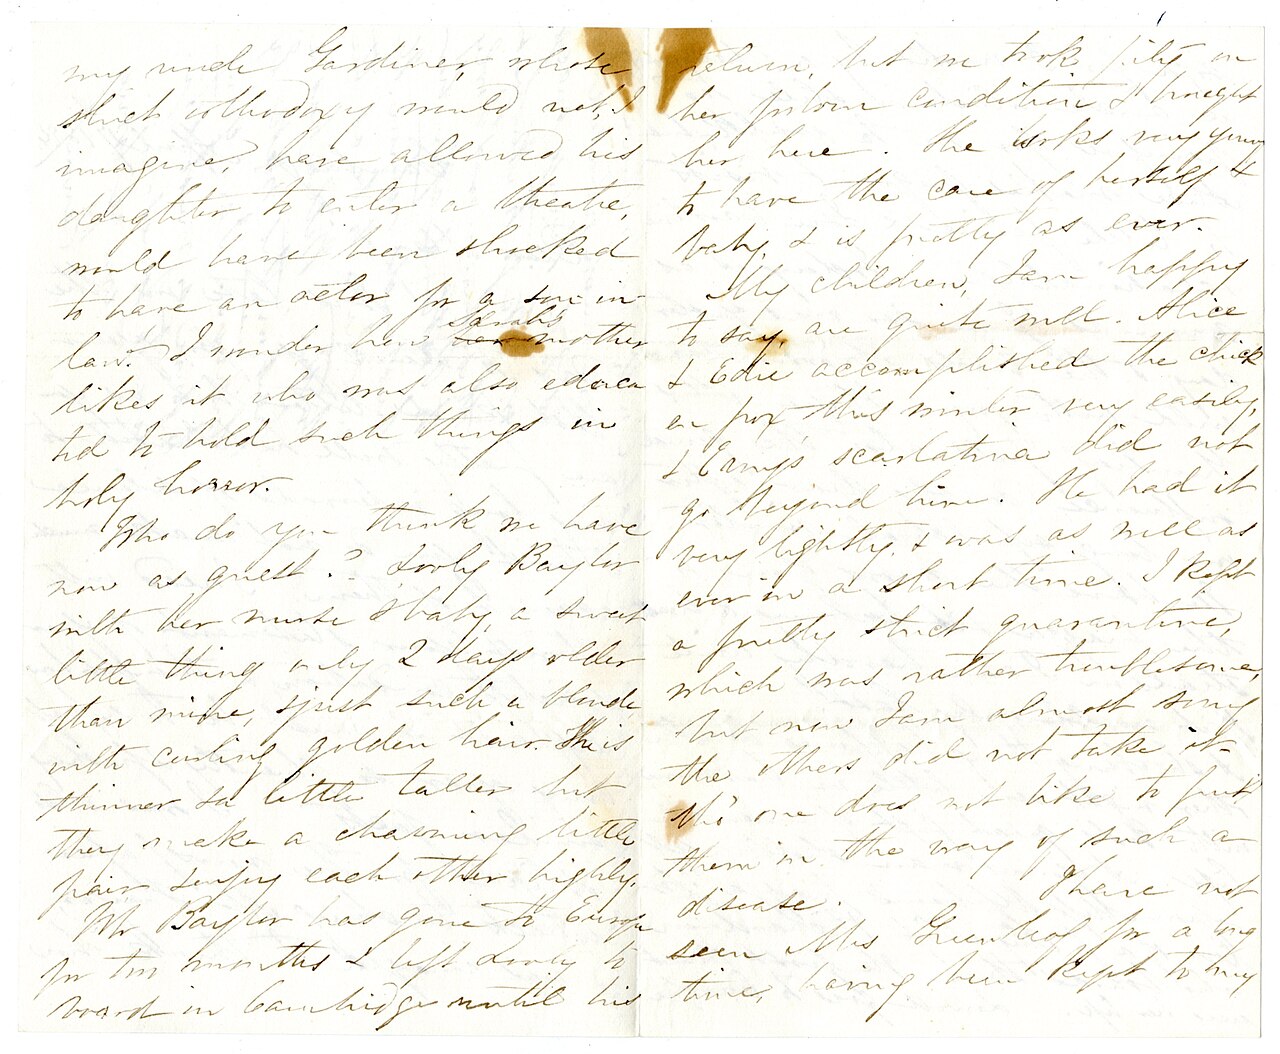 my uncle Gardiner, whose
strict orthodoxy would not, I
imagine, have allowed his
daughter to enter a theatre,
would have been shocked
to have an actor for a son in
law. I wonder how Sarah's mother
likes it who was also educa
ted to hold such things in
holy horror.
Who do you think we have
now as guest? Lovly Baylor
with her nurse & baby, a sweet
little thing only 2 days older
than mine, & just such a blonde
with curling golden hair. She is
thinner & a little taller but
they make a charming little
pair & enjoy each other highly.
Mr Baylor has gone to Europe
for two months & left Lovly to
board in Cambridge until his
return, but we took pity on
her forlorn condition & brought
her here. She looks very young
to have the care of herself &
baby, & is pretty as ever.
My children, I am happy
to say, are quite well. Alice
& Edie accomplished the chick
en pox this winter very easily,
& Emy's scarlatina did not
go beyond him. He had it
very lightly, & was as well as
ever in a short time. I kept
a pretty strict quarantine,
which was rather troublesome,
but now I am almost sorry
the others did not take it
tho' one does not like to put
them in the way of such a
disease. I have not
seen Mrs Greenleaf for a long
time, having been kept to my